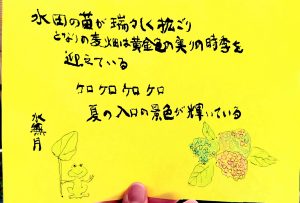 水田の苗が瑞々しく拡ごり
となりの麦畑は黄金色の実りの時季を
迎えている
ケロ ケロ ケロ ケロ
夏の入口の景色が輝いている
水無月